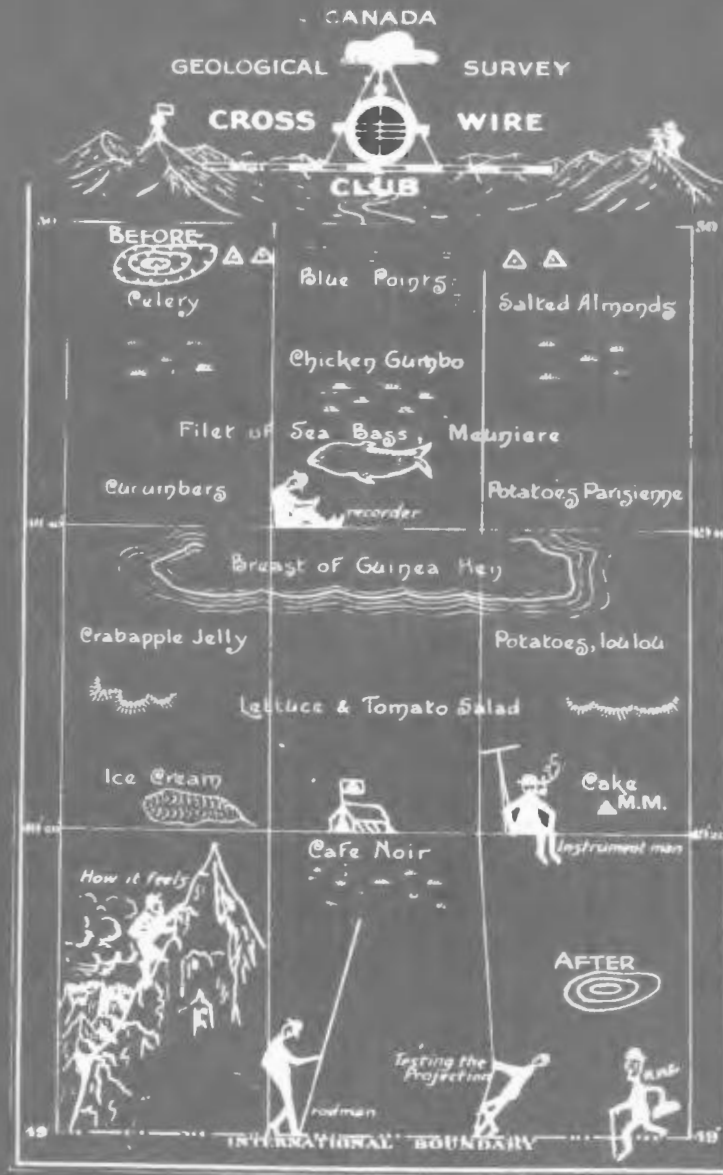 CANADA
GEOLOGICAL SURVEY
CROSS WIRE
CLUB
50 50
BEFORE
Blue Points
Celery Salted Almonds
Chicken Gumbo
Filet of Sea Bass, Meuniere
Cucumbers Potatoes Parisienne
recorder
Breast of Guinea Hen
Crabapple Jelly Potatoes, loulou
Lettuce & Tomato Salad
Ice Cream Cake
M.M.
Cafe Noir Instrument man
How it feels
AFTER
Testing the
Projection
rodman
49 49°
INTERNATIONAL BOUNDARY